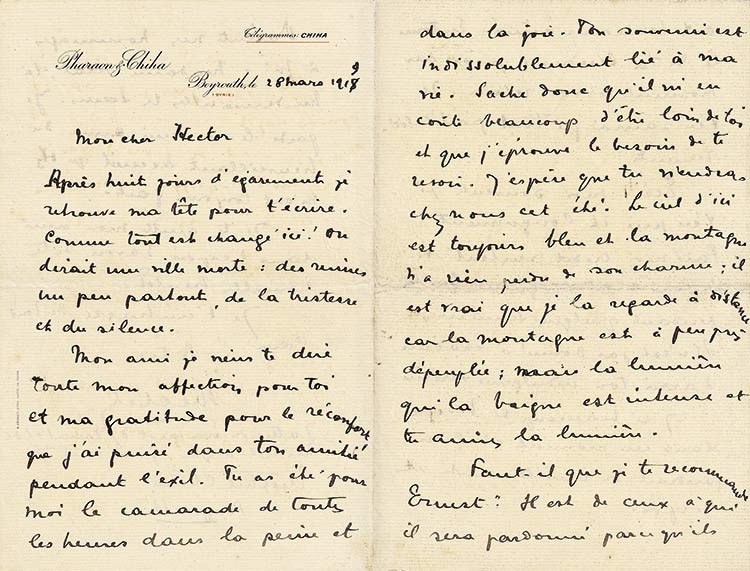 Télégrammes: CHIHA
Pharaon & Chiha
Beyrouth, le 28 mars 1919
(SYRIE)
Mon cher Hector
Après huit jours d'égarement je
retrouve ma tête pour t'écrire.
Comme tout est changé ici! On
dirait une ville morte: des ruines
un peu partout, de la tristesse
et du silence.
Mon ami je viens te dire
toute mon affection pour toi
et ma gratitude pour le réconfort
que j'ai puisé dans ton amitié
pendant l'exil. Tu as été pour
moi le camarade de toutes
les heures dans la peine et
dans la joie. Ton souvenir est
indissolublement lié à ma
vie. Sache donc qu'il m'en
coûte beaucoup d'être loin de toi
et que j'éprouve le besoin de te
revoir. J'espère que tu viendras
chez nous cet été. Le ciel d'ici
est toujours bleu et la montagne
n'a rien perdu de son charme; il
est vrai que je la regarde à distance
car la montagne est à peu près
dépeuplée; mais la lumière
qui la baigne est intense et
tu aimes la lumière.
Faut-il que je te recommande
Ernest? Il est de ceux à qui
il sera pardonné parce qu'ils